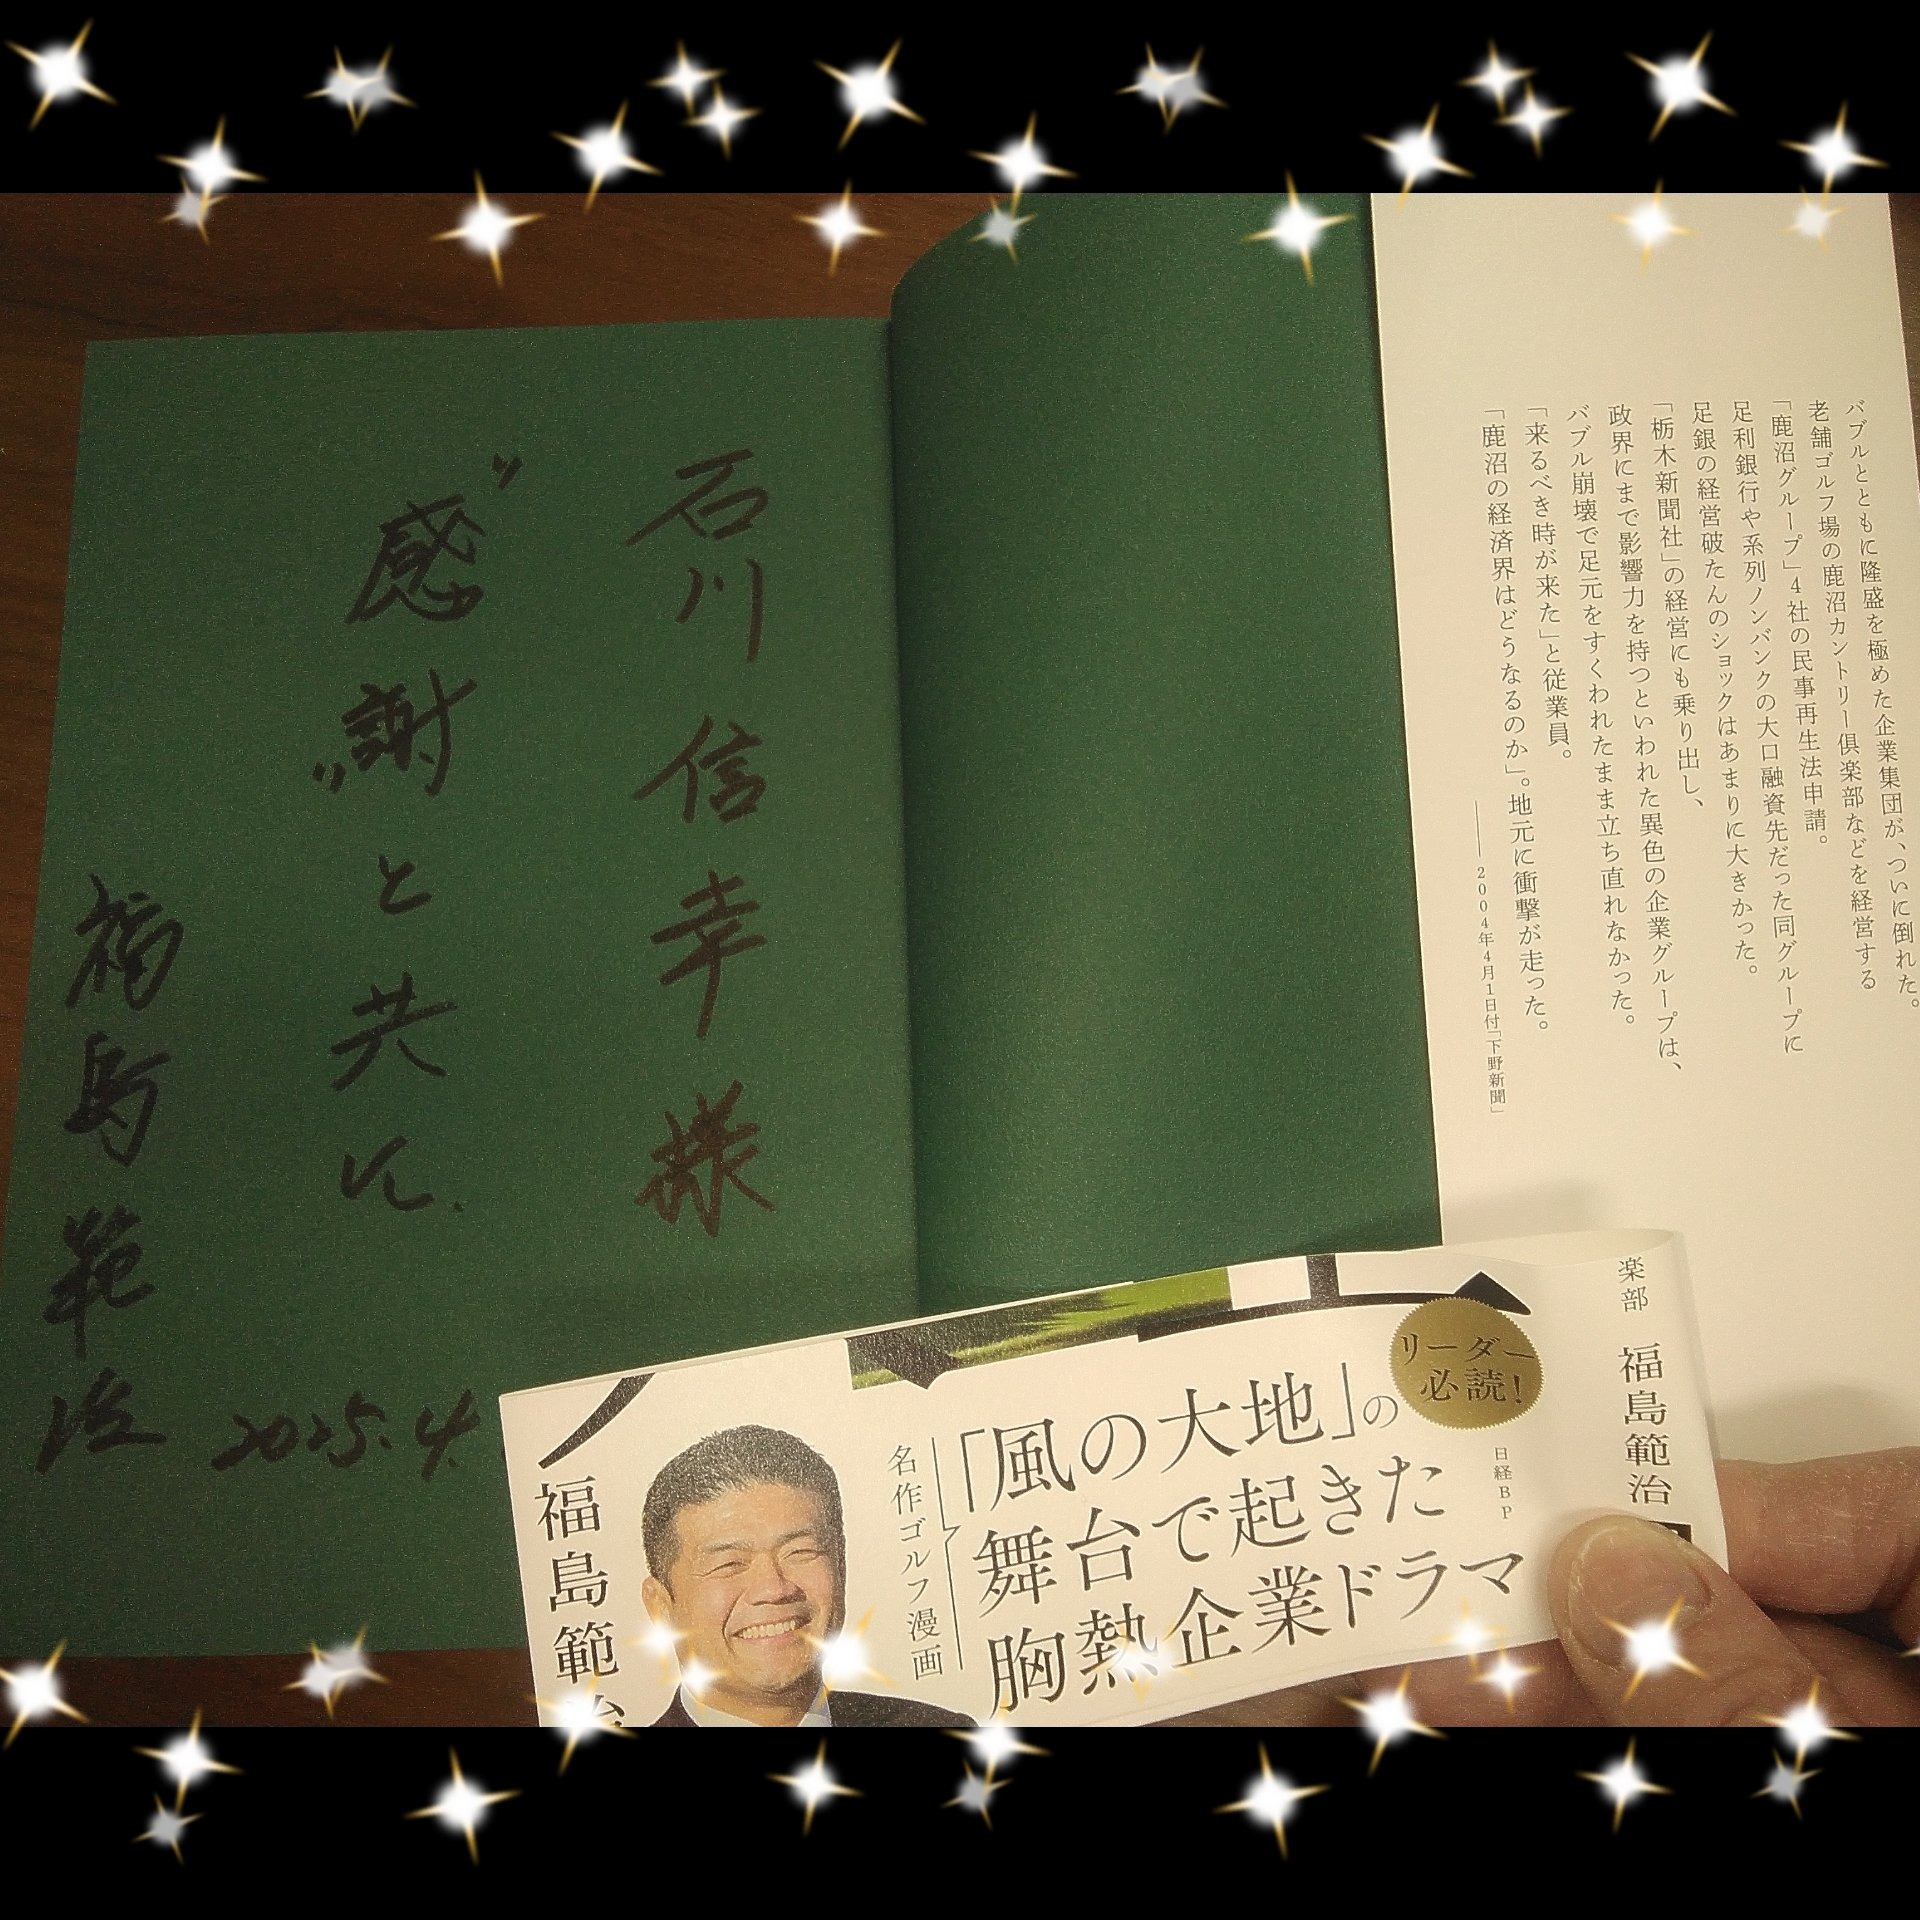 バブルとともに隆盛を極めた企業集団が、ついに倒れた。
老舗ゴルフ場の鹿沼カントリー倶楽部などを経営する
「鹿沼グループ」4社の民事再生法申請。
足利銀行や系列ノンバンクの大口融資先だった同グループに
足銀の経営破たんのショックはあまりに大きかった。
「栃木新聞社」の経営にも乗り出し、
政界にまで影響力を持つといわれた異色の企業グループは、
バブル崩壊で足元をすくわれたまま立ち直れなかった。
「来るべき時が来た」と従業員。
「鹿沼の経済界はどうなるのか」。地元に衝撃が走った。
――2004年4月1日付「下野新聞」
石川信幸様
"感謝"と共に.
福島範治
2025.4.
楽部 福島範治
リーダー
必読!
日経BP
名作ゴルフ漫画
「風の大地」の
舞台で起きた
胸熱企業ドラマ
福島範治